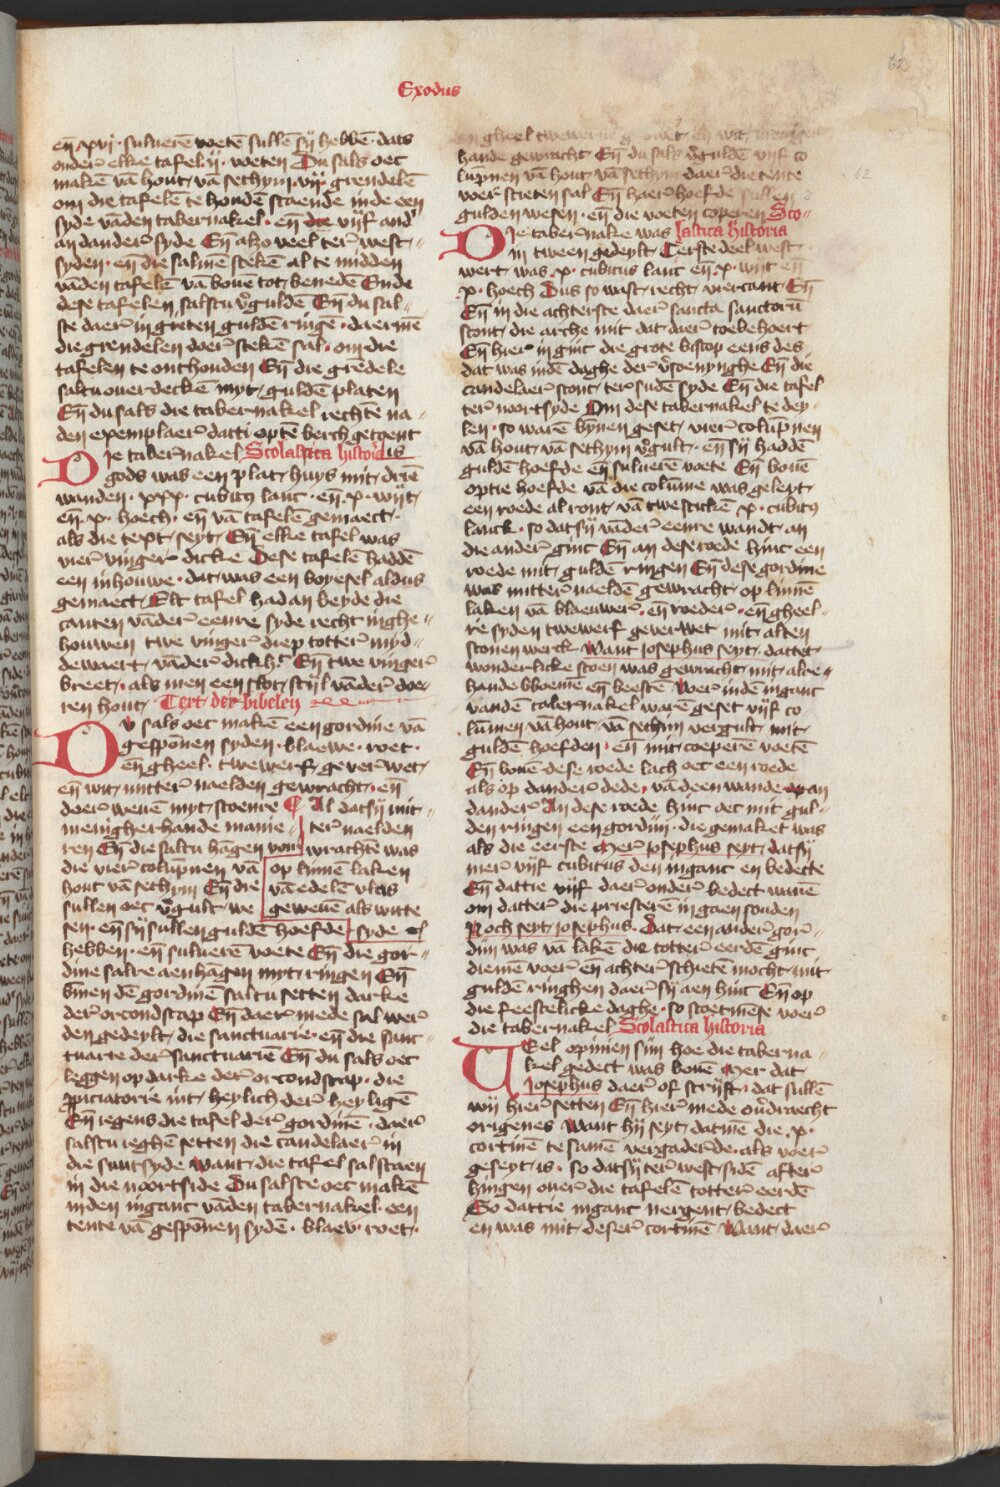 Exodus
62
eñ xvj · suluerē voetē sullē sÿ hebbē · dats
onder elke tafel ij · voeten Du sals oec
makē vā hout vā sethym vijf grendelē
om die tafelē te houdē staende in de een
syde vāden tabernakel · eñ die vijf and
an dander syde Eñ alzo veel ter west
syden · eñ die salmē stekē al te midden
vāden tafelē vā bouē tot benedē Ende
dese tafelen salstu vguldē Eñ du sal
ste daer in gieten guldē ringē · daermē
die grendelen doer stekē sal · om die
tafelen te onthouden Eñ die grēdele
saltu ouerdeckē myt guldē platen
Eñ du sals die tabernakel rechte na
den exemplaer datti optē berch getoent
is
Scolastica historia
Die tabernakel
gods was een plat huys mit driē
wanden · xxx · cubitꝰ lanc · eñ · x · wijt
eñ · x · hoech · eñ vā tafelē gemaect
als die text seyt Eñ elke tafel was
vier vinger dicke Dese tafelē haddē
een inhouwe · dat was een boyesel aldus
gemaect Elc tafel had an beyde die
canten vāder eenre syde recht inghe
houwen twe vinger diep totter myd
dewaert vāder dickh Eñ twe vinger
breet · als men een slot stijl vāder doe
ren hout
Text der bibelen
Du sals oec makē een gordine vā
gesponen syden · blaewe · roet ·
eñ gheel · twewerf geverwet
eñ wit mitter naelden gewracht · eñ
doer weuē myt scoenre
menigherhande manie
ren Eñ die saltu hāgen voer
die vier columnen vā
hout vā sethym Eñ die
sullen oec vgult we
sen · eñ sÿ sullen guldē hoefde
Al datsÿ mit
ter naelden
wrachte was
op linnē laken
vā edelē vlas
geweuē als witte
syde
hebben · eñ suluerē voete Eñ die gor
dine salre aenhāgen myt ringen Eñ
bīnen dē gordinē saltu setten darke
der orcondscap Eñ daer mede sal wer
den gedeylt die sanctuarie · eñ die sanc
tuarie der sanctuarie Eñ du sals oec
leggen op darke der orcondscap · die
ppiciatorie int heylich der heyligē
Eñ iegens die tafel der gordinē · daer
salstu ieghē setten die candelaer in
die suutsyde want die tafel sal staen
in die noortside Du salste oec makē
inden inganc vāden tabernakel · een
tente vā gesponen sydē · blaew · roet
eñ gheel twewerf
hande gewracht Eñ du sals vguldē vijf co
lūpnen vā hout vā sethym daer die tente
voer scieten sal Eñ haer hoefde sullen
gulden wesen · eñ die voeten coperen
Scolastica historia
Die tabernake was
in tween gedeylt Teerste deel west
wert was · x · cubitus lanc eñ · x · wijt eñ
· x · hoech Dus so wast recht viercant Eñ
Eñ in die achterste daer sancta sanctorū
stont die arche mit dat daer toebehoert
Eñ hier in ginc die grote biscop eens des
dat was indē daghe der vsoenynghe Eñ die
candelaer stont ter sudē syde Eñ die tafel
ter noortsyde Om dese tabernakel te dey
len · so warē bynen geset vier columpnen
vā hout · vā sethym vgult · eñ sÿ haddē
guldē hoefde eñ suluerē voete Eñ bouē
optie hoefde vā die colūme was geleyt
een roede al ront vā twe stuckē x · cubitꝰ
lanck · so datsÿ vāder eenre wandt an
die ander ginc Eñ an dese roede hinc een
roede mit guldē ringen Eñ dese gordine
was mitter naeldē gewracht op linnē
laken vā blaeuwer · eñ roeder · eñ gheel
re syden twewerf geverwet mit alten
sconen werck Want Josephus seyt datter
wonderlicke scoen was gewracht mit alre
hande bloemē eñ beestē Voer indē inganc
vandē tabernakel warē geset vijf co
lūmen vā hout vā sethim vergult mit
guldē hoefden · eñ mit coeperē voetē
Eñ bouē dese roede lach oec een roede
als op dander dede · vā deen wande an
dander An dese roede hinc oec mit gul
den ringen een gordijn · die gemaket was
als die eerste Mer Josephus seyt datsÿ
mer vijf cubitus den inganc en bedecte
Eñ dattie vijf daer onder bedect warē
om datter die priesterē in gaen souden
Noch seyt Josephus · Dat een ander gor
dijn was vā lakē die totter eerdē ginc
diemē voer eñ achter schietē mocht mit
guldē ringhen daer sÿ aen hinc Eñ op
die feestelicke daghe · so scoetmēse voer
die tabernakel
Scolastica historia
Veel opinien sijn hoe die taberna
kel gedect was bouē Mer dat
Josephus daer of scrijft · dat sullē
wij hier setten Eñ hier mede ou̅dracht
origenes Want hij seyt datmē die · x ·
cortinē te samē vergaderde · als voer
geseyt is · so datsÿ ter westsidē after
hingen ouer die tafelē totter eerdē
So dattie inganc nergent bedect
en was mit deser cortinē Want daer